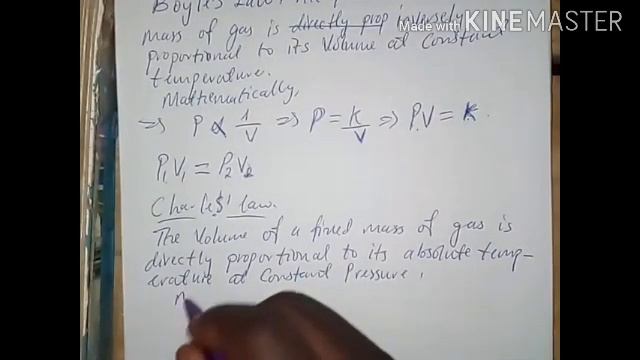 Boyle's Law
Made with KINEMASTER
mass of gas is directly prop inversely
proportional to its Volume at Constant
temperature.
Mathematically,
=> P ∝ 1/V => P = K/V => P.V = K.
P₁V₁ = P₂V₂
Charle$' law.
The Volume of a fixed mass of gas is
directly proportional to its absolute temp-
erature at Constant Pressure.